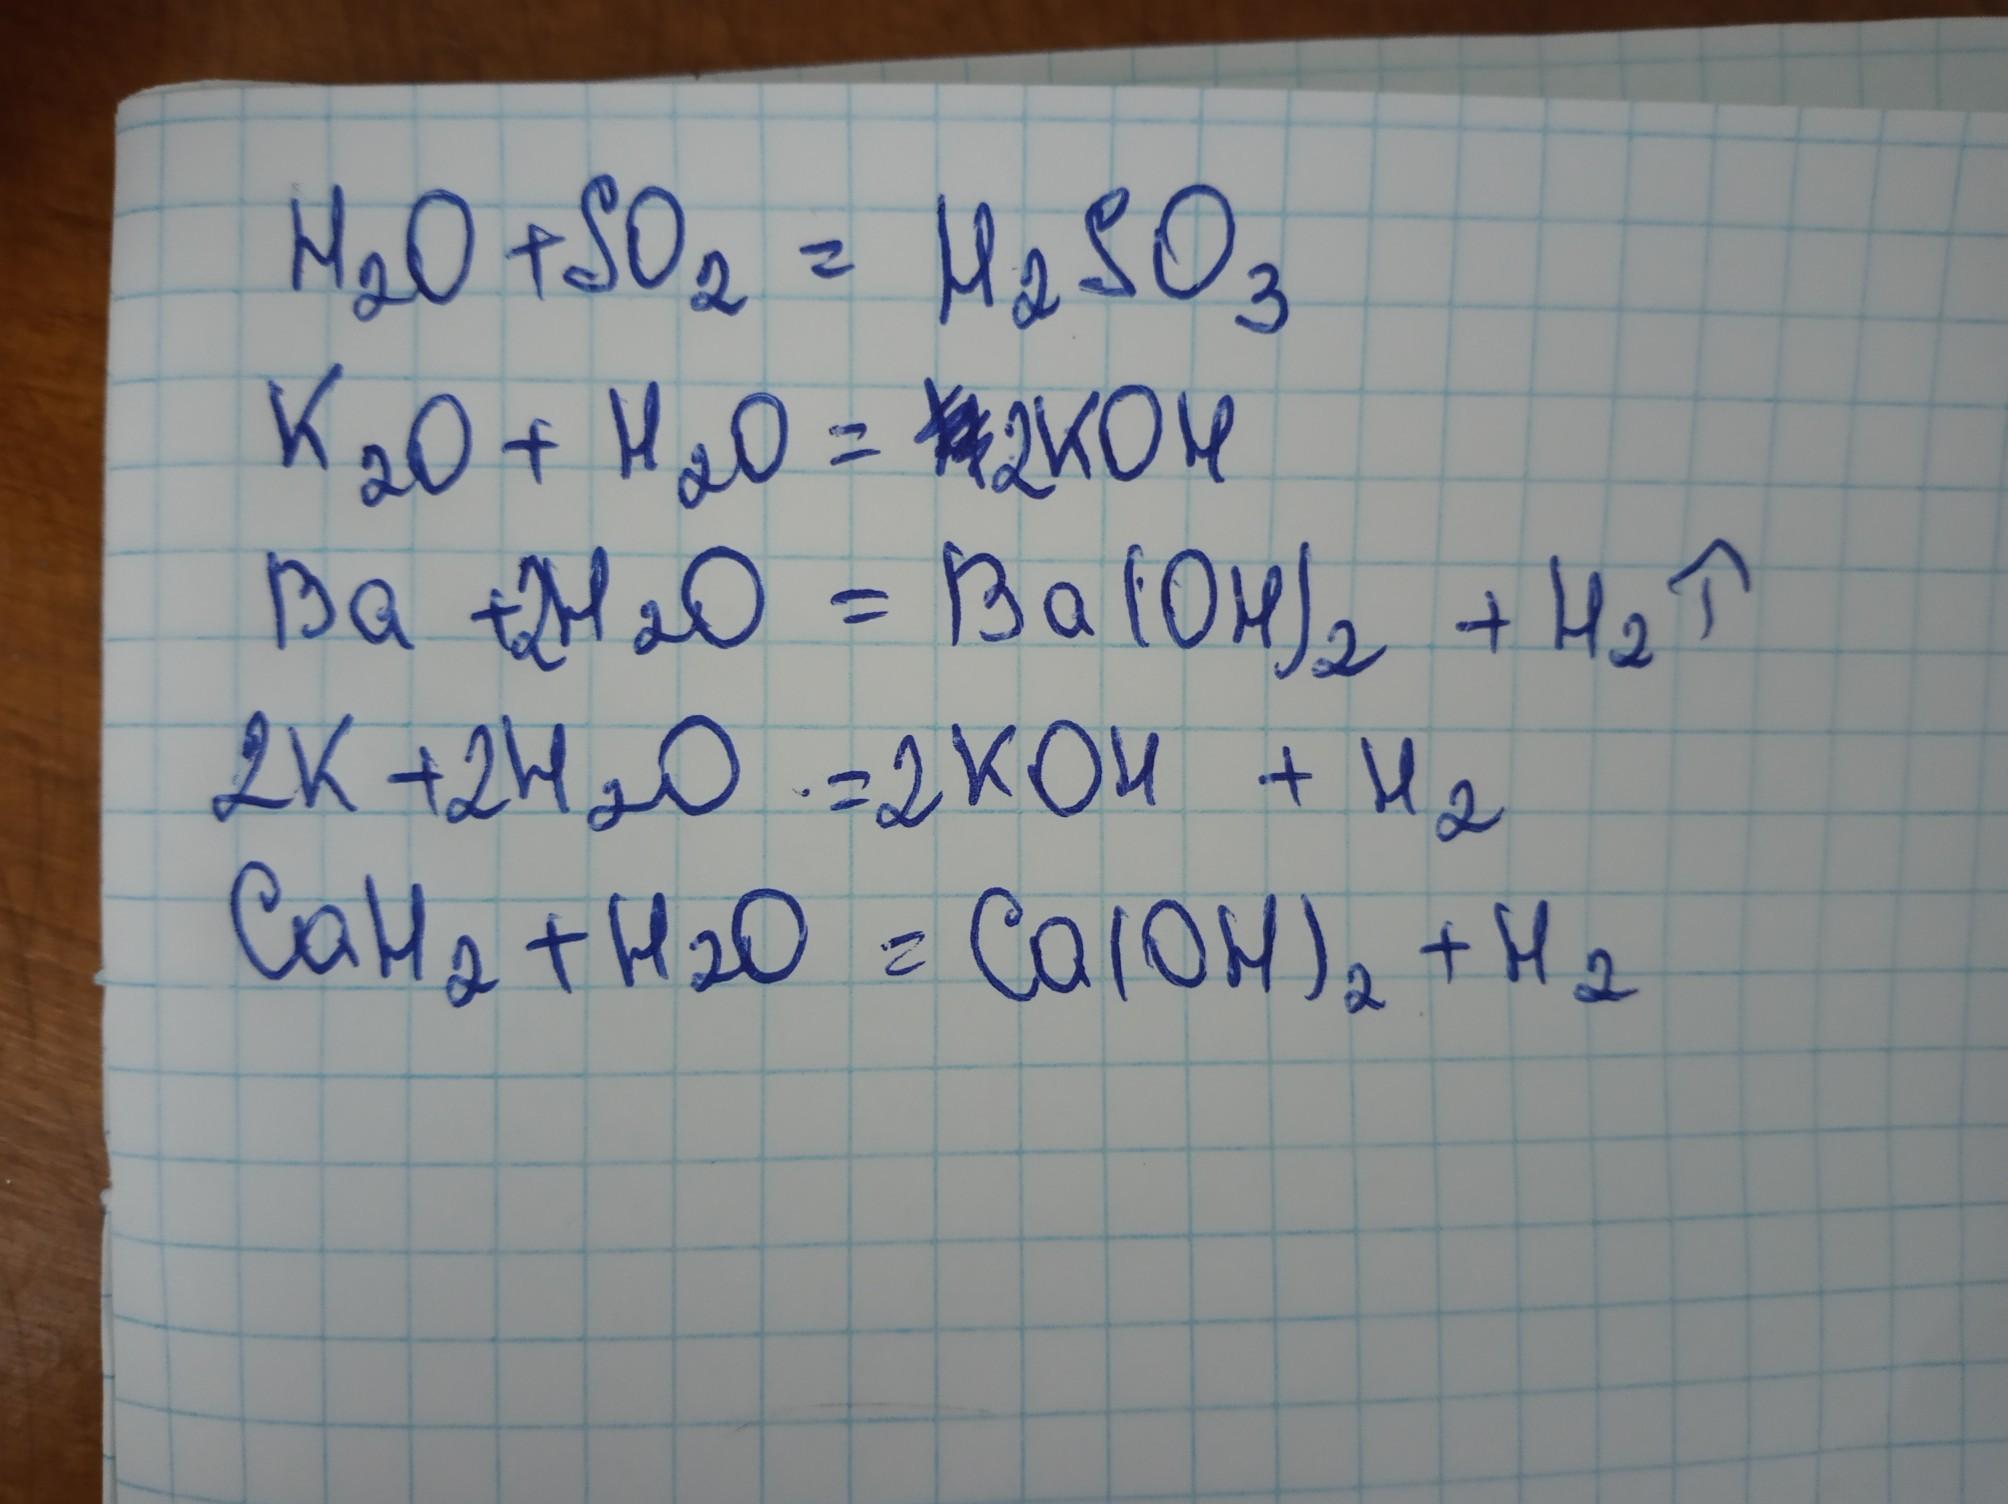 H₂O + SO₂ = H₂SO₃
K₂O + H₂O = 2KOH
Ba + 2H₂O = Ba(OH)₂ + H₂↑
2K + 2H₂O = 2KOH + H₂
CaH₂ + H₂O = Ca(OH)₂ + H₂